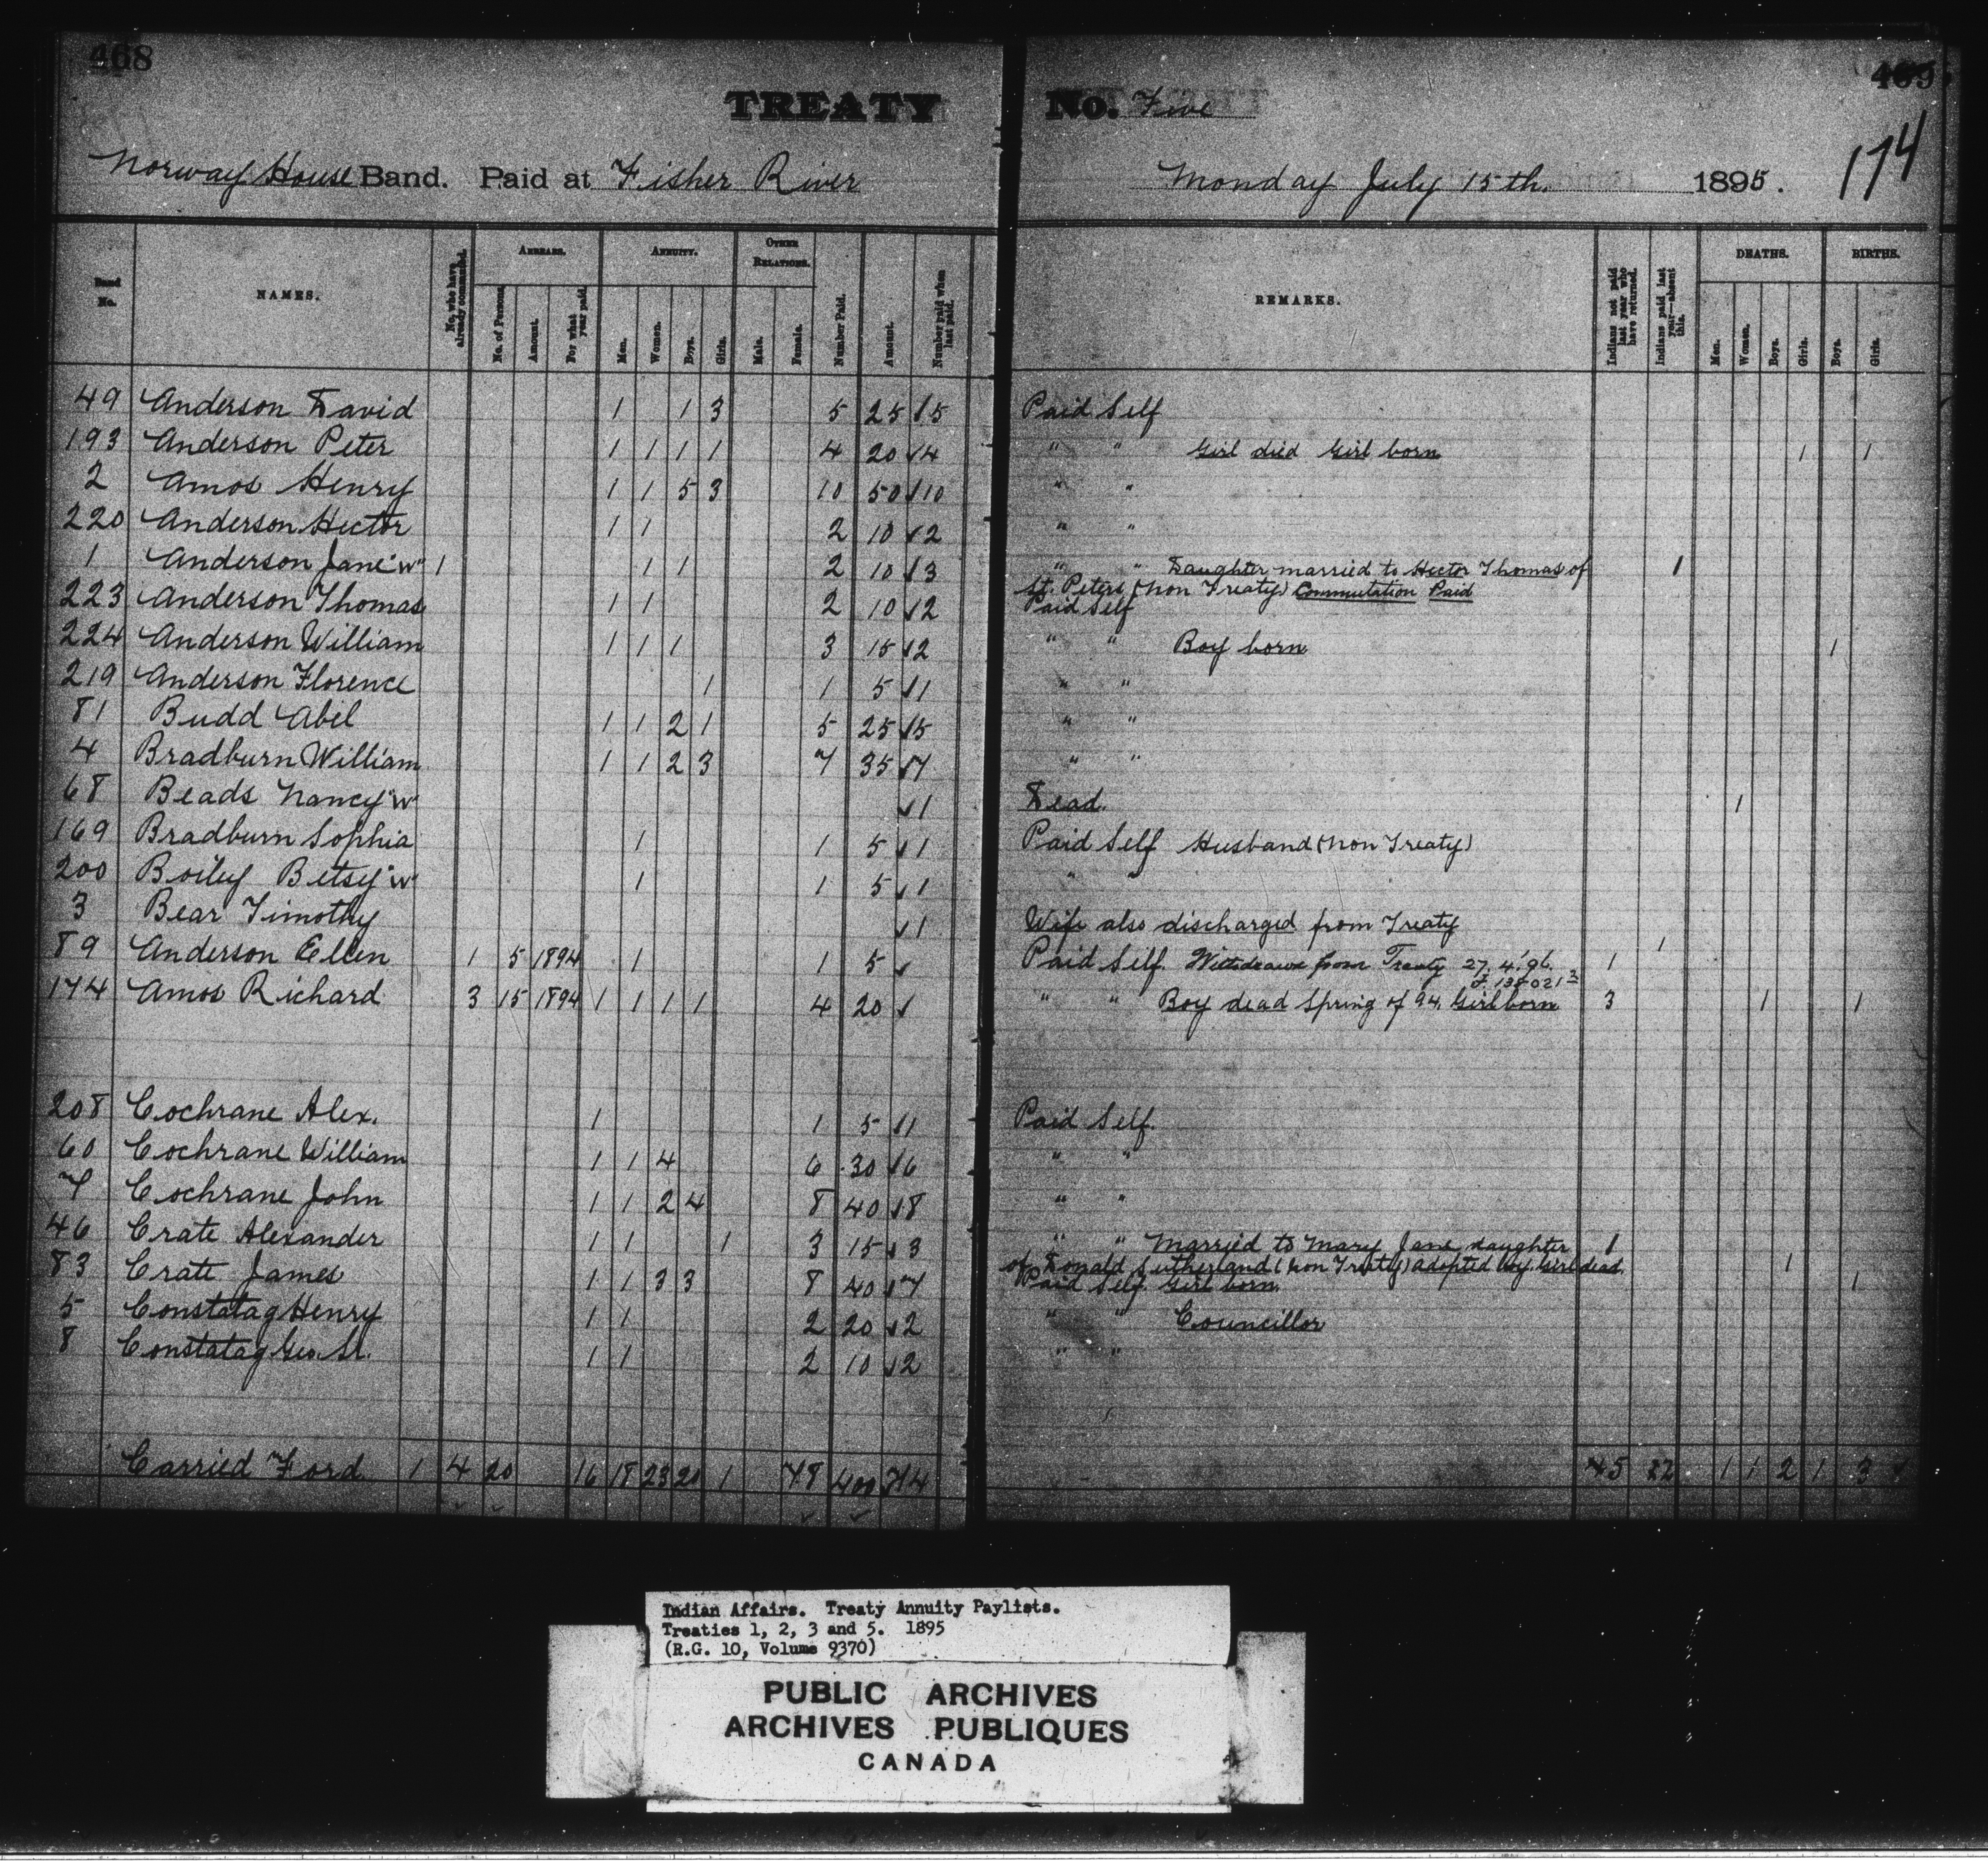 468
469
TREATY No. Five
174
Norway House Band. Paid at Fisher River Monday July 15th. 1895.
Band No. NAMES. No. who have already commuted. ARREARS. ANNUITY. OTHER RELATIONS. Number Paid. Amount. Number paid when last paid. REMARKS. Indians not paid last year who have returned. Indians paid last year—absent this. DEATHS. BIRTHS.
No. of Persons. Amount. For what year paid. Men. Women. Boys. Girls. Male. Female. Men. Women. Boys. Girls. Boys. Girls.
49 Anderson David 1 1 3 5 25 √5 Paid Self
193 Anderson Peter 1 1 1 1 4 20 √4 " " Girl died Girl born 1 1
2 Amos Henry 1 1 5 3 10 50 √10 " "
220 Anderson Hector 1 1 2 10 √2 " "
1 Anderson Jane "W" 1 1 1 2 10 √3 " " Daughter married to Hector Thomas of 1
St. Peters (Non Treaty) Commutation Paid
223 Anderson Thomas 1 1 2 10 √2 Paid Self
224 Anderson William 1 1 1 3 15 √2 " " Boy born 1
219 Anderson Florence 1 1 5 √1 " "
81 Budd Abel 1 1 2 1 5 25 √5 " "
4 Bradburn William 1 1 2 3 7 35 √7 " "
68 Beads Nancy "W" √1 Dead. 1
169 Bradburn Sophia 1 1 5 √1 Paid Self Husband (Non Treaty)
200 Boiley Betsy "W" 1 1 5 √1 " "
3 Bear Timothy √1 Wife also discharged from Treaty 1
89 Anderson Ellen 1 5 1894 1 1 5 √ Paid Self. Withdrawn from Treaty 27.4.'96. 1
174 Amos Richard 3 15 1894 1 1 1 1 4 20 √ " " Boy dead Spring of 94. Girl born 3 1 1
208 Cochrane Alex. 1 1 5 √1 Paid Self.
60 Cochrane William 1 1 4 6 30 √6 " "
7 Cochrane John 1 1 2 4 8 40 √8 " "
46 Crate Alexander 1 1 1 3 15 √3 " " Married to Mary Jane daughter 1
of Donald Sutherland (Non Treaty) adopted boy. Girl dead. 1
83 Crate James 1 1 3 3 8 40 √7 Paid Self Girl born. 1
5 Constatag Henry 1 1 2 20 √2 " " Councillor
8 Constatag Geo. Sr. 1 1 2 10 √2 " "
Carried Ford 1 4 20 16 18 23 20 1 78 400 74 1 1 2 1 3
Indian Affairs. Treaty Annuity Paylists.
Treaties 1, 2, 3 and 5. 1895
(R.G. 10, Volume 9370)
PUBLIC ARCHIVES
ARCHIVES PUBLIQUES
CANADA